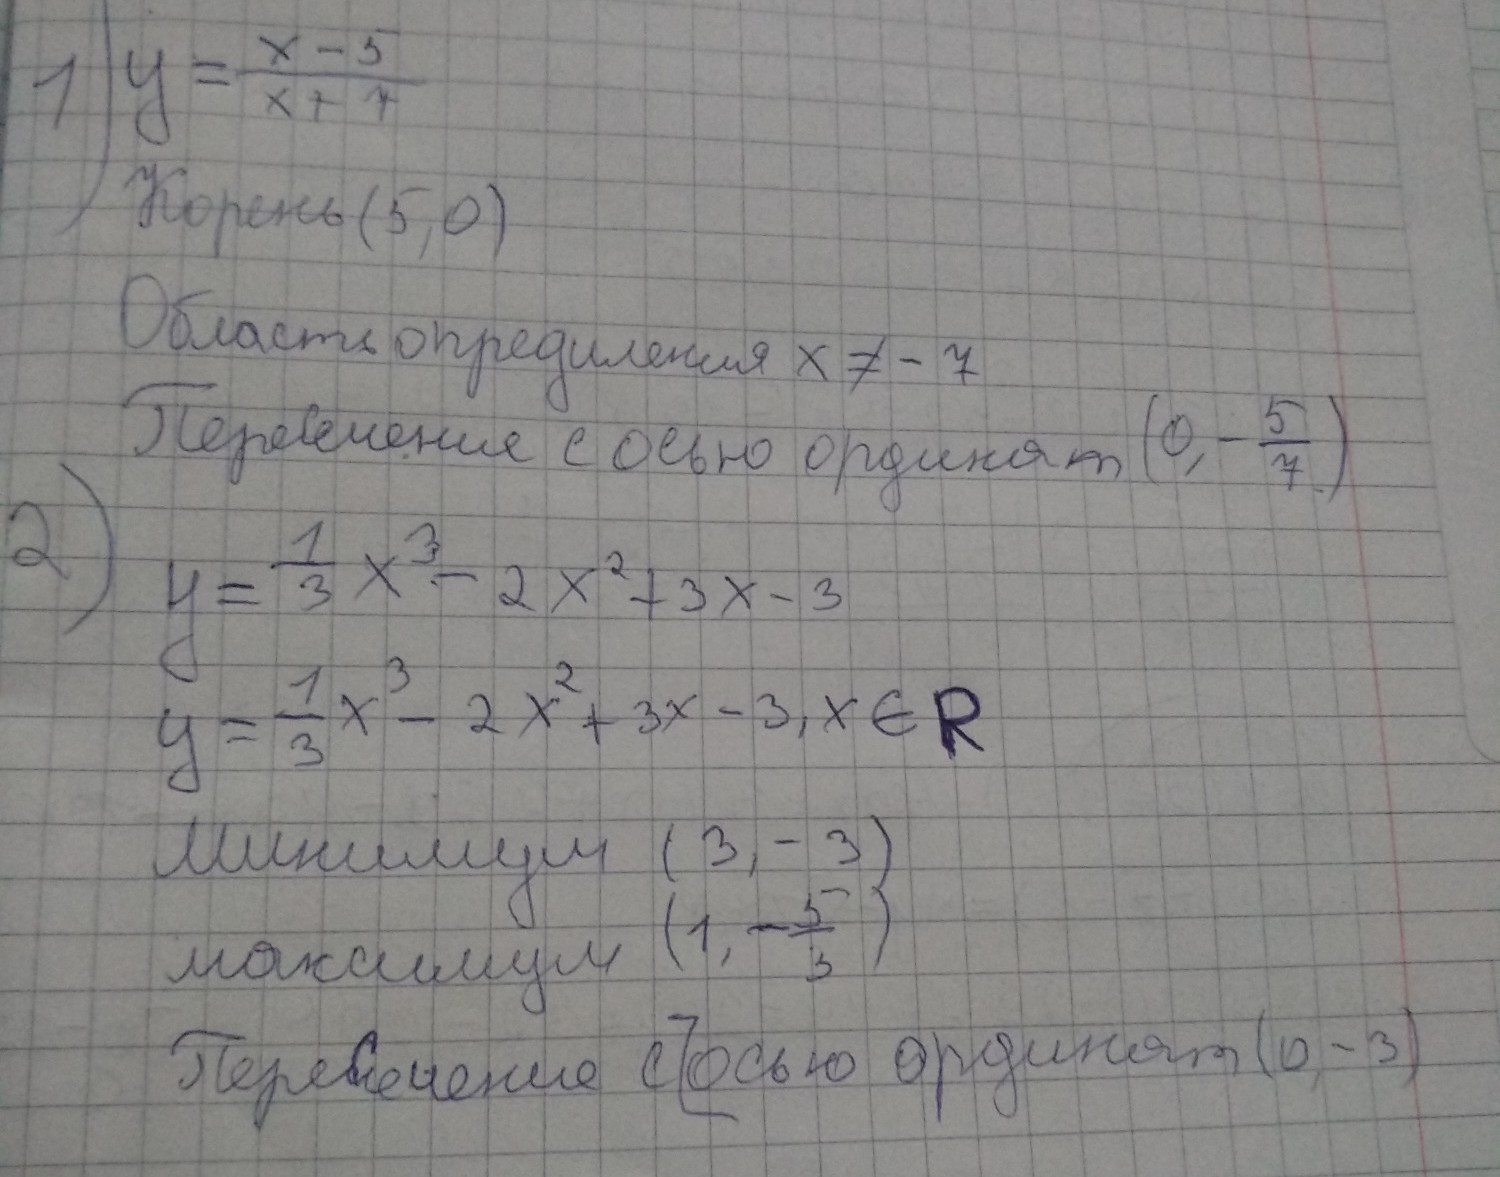 1) y = (x - 5)/(x + 7)
Корень (5, 0)
Область опредиления x ≠ - 7
Перевечение с осьюординат (0, - 5/7)
2) y = 1/3 x³ - 2x² + 3x - 3
y = 1/3 x³ - 2x² + 3x - 3, x ∈ R
Минимум (3, - 3)
максимум (1, - 5/3)
Пересечение с осью ординат (0, - 3)